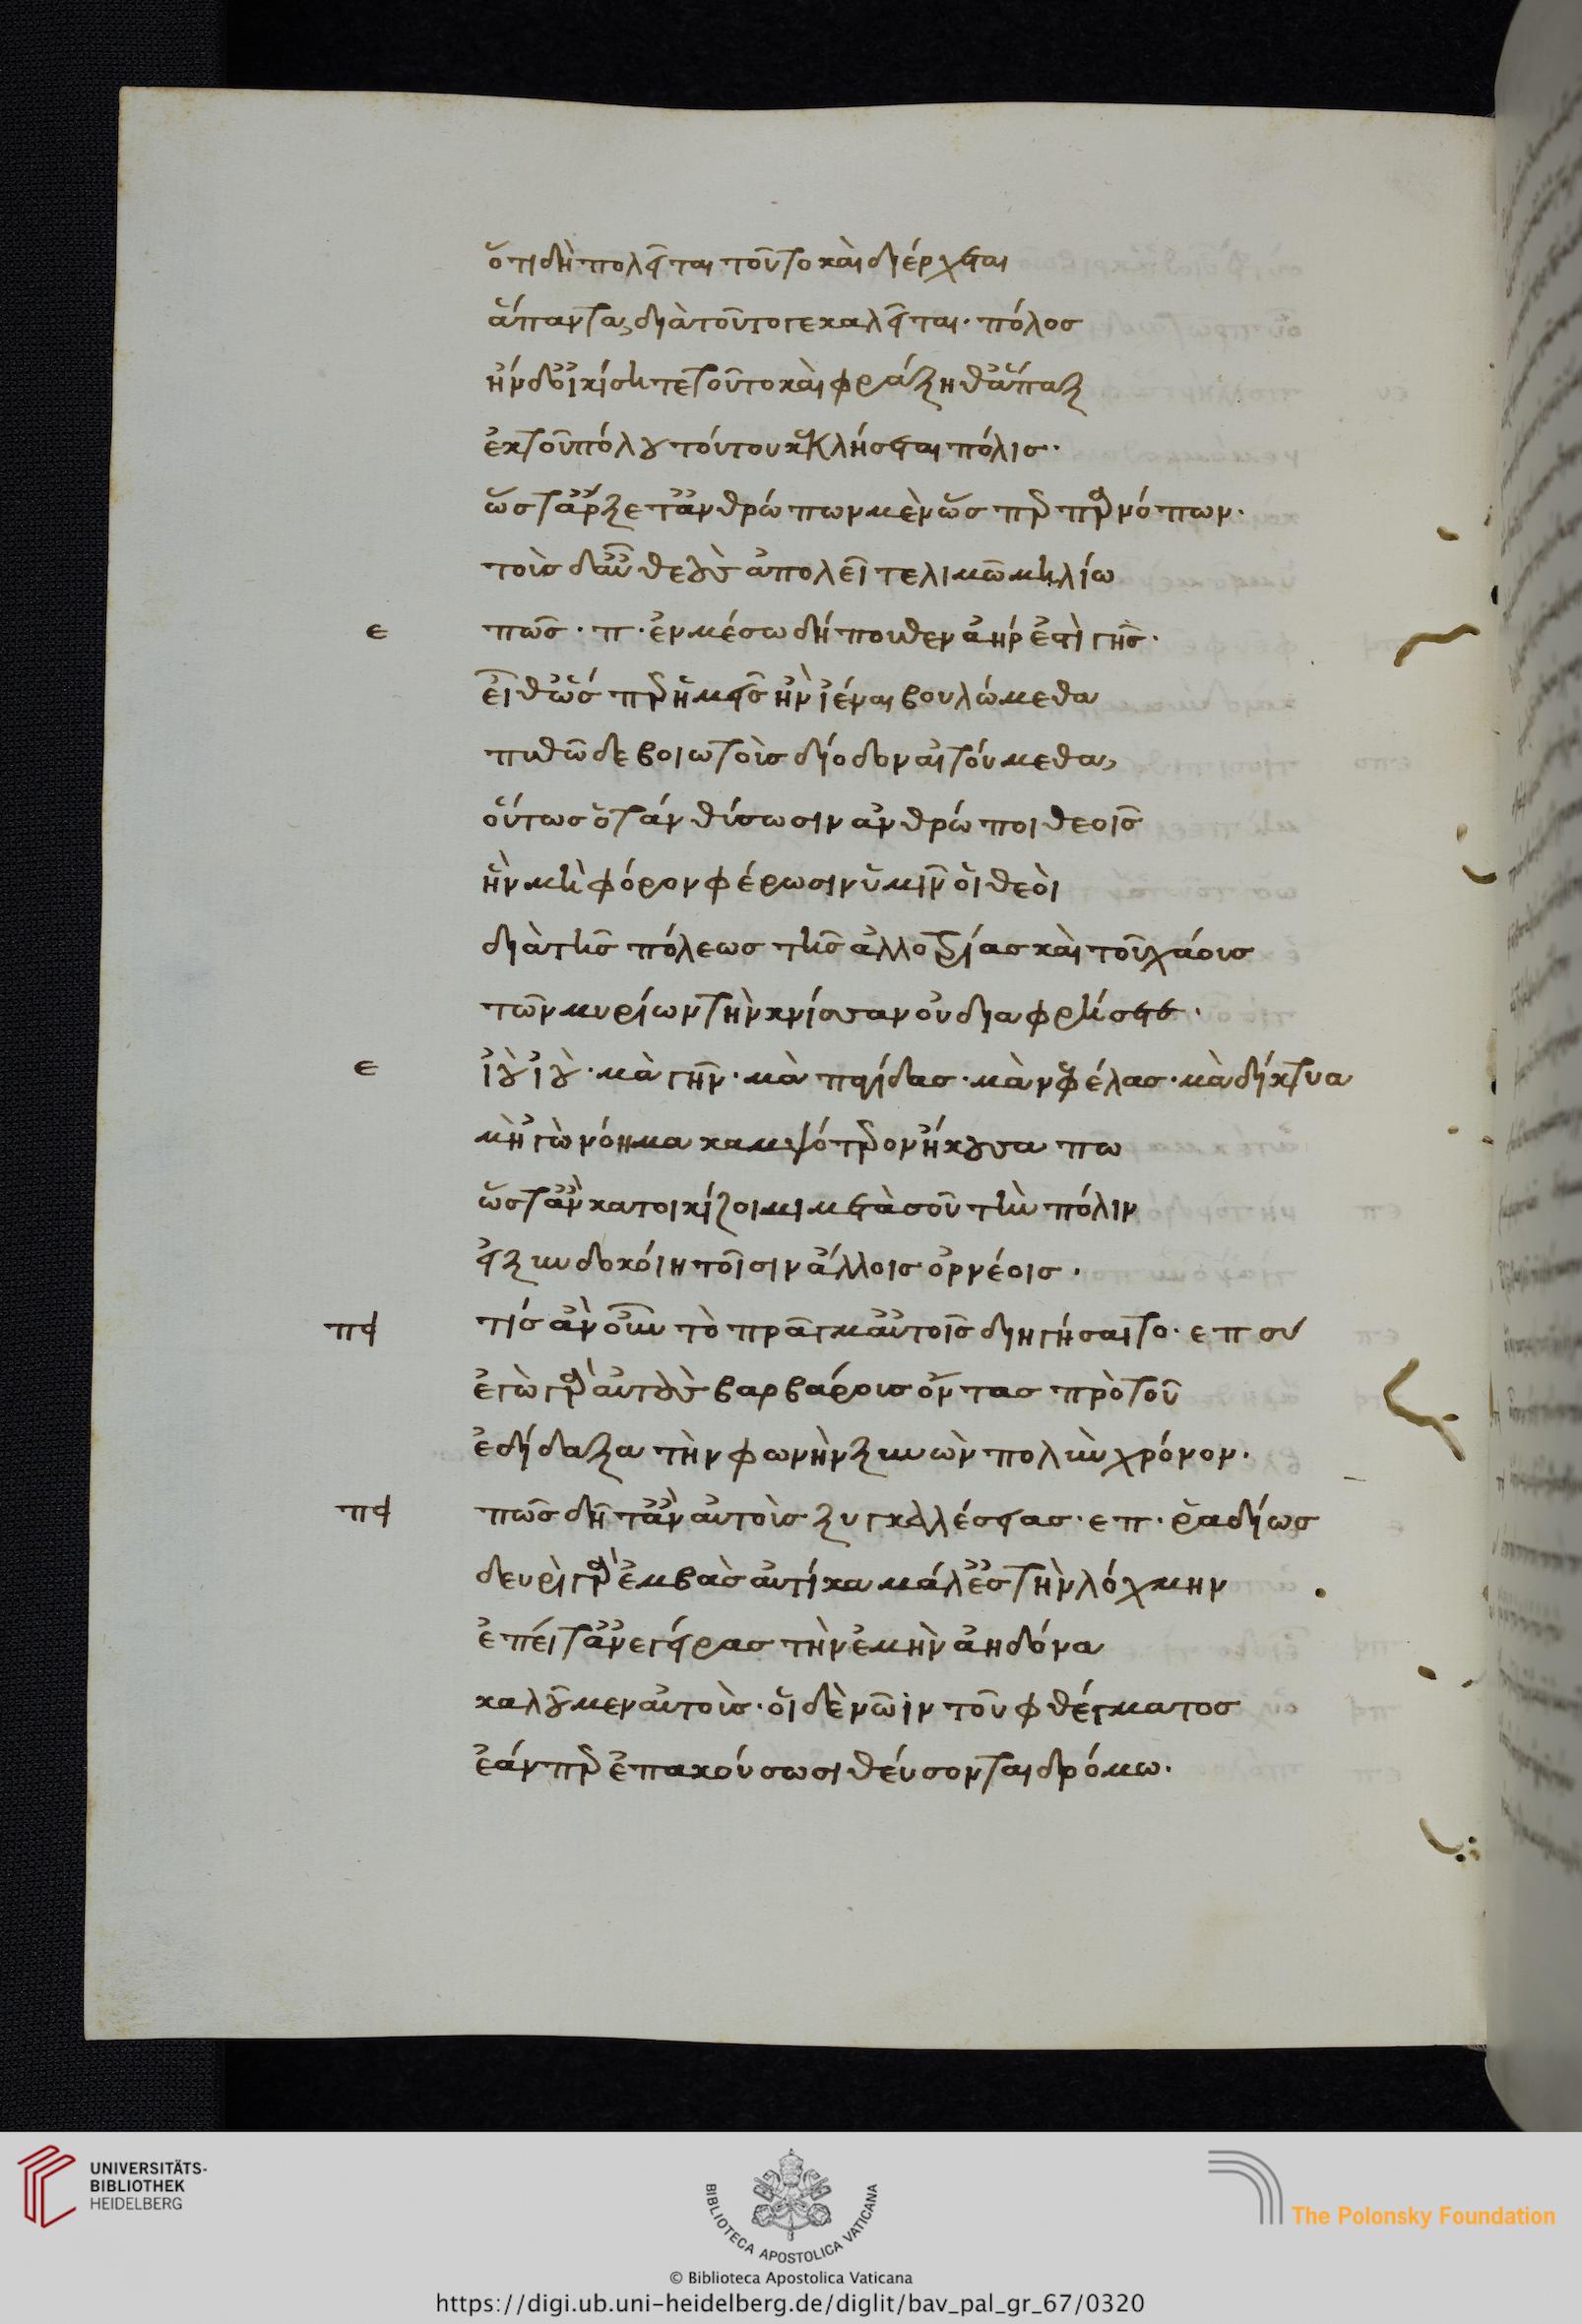 ὅτι δὴ πολεῖται τοῦτο καὶ διέρχεται
ἅπαντα, διὰ τοῦτό γε καλεῖται· πόλος
ἢν δ' οἰκίσητε τοῦτο καὶ φράξηθ' ἅπαξ
ἐκ τοῦ πόλου τούτου κεκλήσεται πόλις·
ὥστ' ἄρξετ' ἀνθρώπων μὲν ὥσπερ παρνόπων·
τοὺς δ' αὖ θεοὺς ἀπολεῖτε λιμῶ μηλίω
ε πῶς· π· ἐν μέσω δήπουθεν ἀήρ ἐστὶ γῆς·
εἶθ' ὥσπερ ἡμεῖς ἢν ἰέναι βουλώμεθα
πυθῶδε βοιωτοὺς δίοδον αἰτούμεθα,
οὕτως ὅταν θύσωσιν ἄνθρωποι θεοῖς
ἢν μὴ φόρον φέρωσιν ὑμῖν οἱ θεοὶ
διὰ τῆς πόλεως τῆς ἀλλοτρίας καὶ τοῦ χάους
τῶν μηρίων τὴν κνίσσαν οὐ διαφρήσετε·
ε ἰοὺ ἰοὺ· μὰ γῆν· μὰ παγίδας· μὰ νεφέλας· μὰ δίκτυα
μὴ 'γὼ νόημα κομψότερον ἤκουσά πω
ὥστ' ἂν κατοικίζοιμι μετὰ σοῦ τὴν πόλιν
εἰ ξυνδοκοίη τοῖσιν ἄλλοις ὀρνέοις·
πει τίς ἂν οὖν τὸ πρᾶγμ' αὐτοῖς διηγήσαιτο· επ σύ
ἐγὼ γὰρ αὐτοὺς βαρβάρους ὄντας πρὸ τοῦ
ἐδίδαξα τὴν φωνὴν ξυνὼν πολὺν χρόνον·
πει πῶς δῆτ' ἂν αὐτοὺς ξυγκαλέσειας· επ· ῥαδίως
δευρὶ γὰρ ἐμβὰς αὐτίκα μάλ' ἐς τὴν λόχμην
ἔπειτ' ἀνεγείρας τὴν ἐμὴν ἀηδόνα
καλοῦμεν αὐτούς· οἱ δὲ νῶιν τοῦ φθέγματος
ἐάνπερ ἐπακούσωσι θεύσονται δρόμω·
UNIVERSITÄTS-
BIBLIOTHEK
HEIDELBERG
BIBLIOTECA APOSTOLICA VATICANA
The Polonsky Foundation
© Biblioteca Apostolica Vaticana
https://digi.ub.uni-heidelberg.de/diglit/bav_pal_gr_67/0320